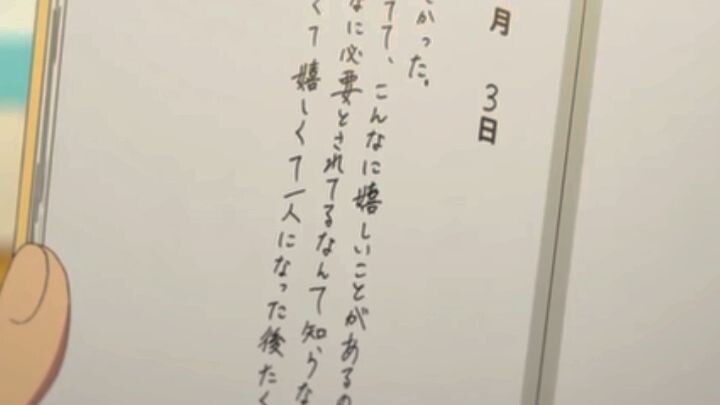 月 3日
かった。
てて、こんなに嬉しいことがあるの
なに必要とされてるなんて知らな
くて嬉しくて一人になった後たく